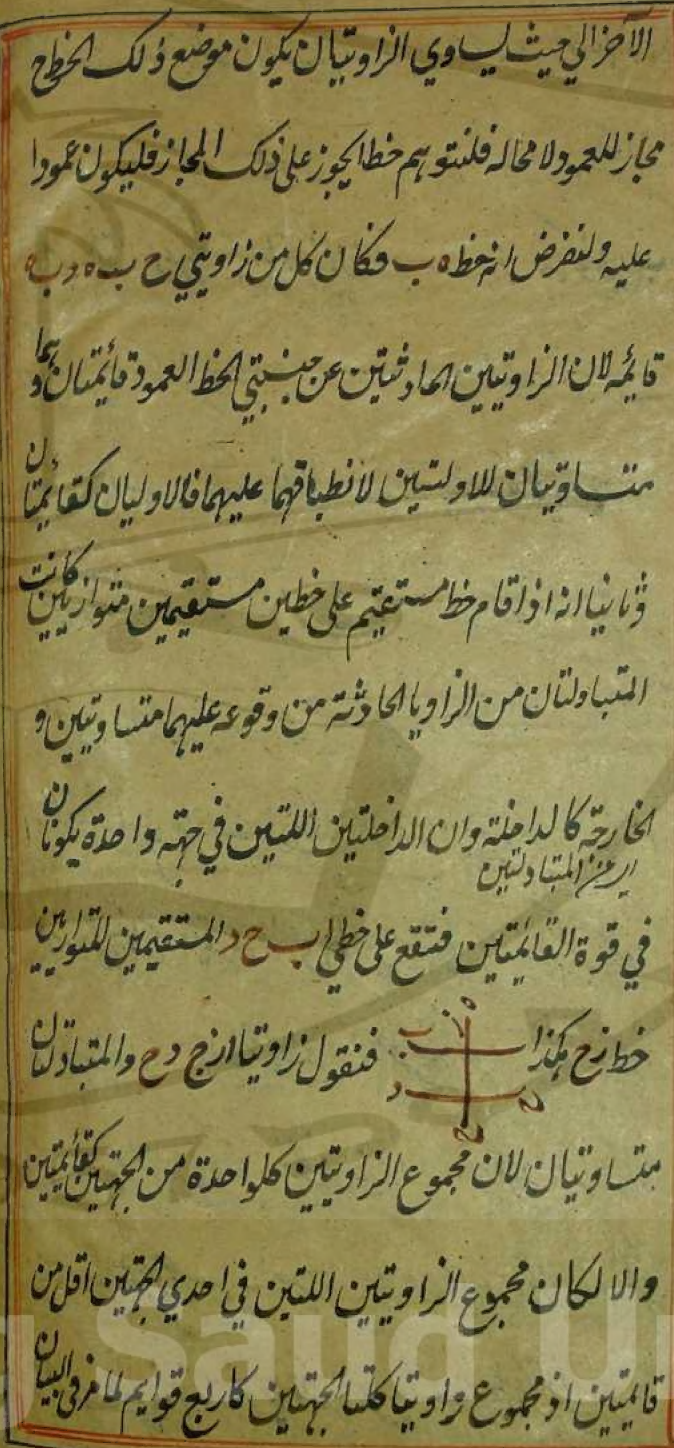 الآخر الي حيث يساوي الزاويتان يكون موضع ذلك الخط ح
مجاز للعمود لا محاله فلنتوهم خطا يجوز علي ذلك المجاز فليكون عمودا
عليه ولنفرض انه خط ه ب فكان كل من زاويتي ح ب ه د ب ه
قايمه لان الزاويتين الحادثتين عن جنبتي الخط العمود قائمتان وهما
متساويتان للاولتين لانطباقهما عليهما فالاوليان كقائمتان
وثانيا انه اذا قام خط مستقيم علي خطين مستقيمين متوازيين كانت
المتبادلتان من الزاويا الحادثة من وقوعه عليهما متساويتين و
الخارجة كالداخلة وان الداخلتين اللتين في جهة واحدة يكونان
اي من المتبادلتين
في قوة القائمتين فتقع علي خطي اب ح د المستقيمين المتوازيين
خط زح هكذا فنقول زاويتا ارح دح والمتبادلتان
متساويتان لان مجموع الزاويتين كلواحدة من الجهتين كقائمتين
والا لكان مجموع الزاويتين اللتين في احدي الجهتين اقل من
قايمتين اذ مجموع زاويتا كلتا الجهتين كاربع قوايم لما مر في البيان
Saud U